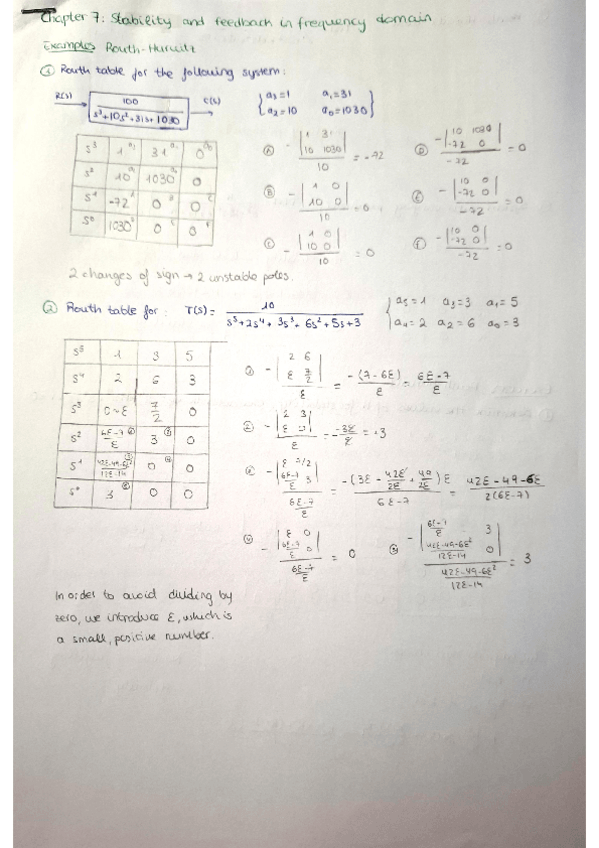 Chapter 7: Stability and feedback in frequency domain
Examples Routh-Hurwitz
① Routh table for the following system:
R(s) 100 / s³+10s²+31s+1030 C(s) { a₃=1 a₁=31 a₂=10 a₀=1030 }
s³ 1 31 0
s² 10 1030 0
s¹ -72 0 0
s⁰ 1030 0 0
Ⓐ -|1 31; 10 1030| / 10 = -72
Ⓑ -|1 0; 10 0| / 10 = 0
Ⓒ -|1 0; 10 0| / 10 = 0
Ⓓ -|10 1030; -72 0| / -72 = 0
-|10 0; -72 0| / -72 = 0
-|10 0; -72 0| / -72 = 0
2 changes of sign → 2 unstable poles.
② Routh table for: T(s) = 10 / s⁵+2s⁴+3s³+6s²+5s+3 { a₅=1 a₃=3 a₁=5 a₄=2 a₂=6 a₀=3
s⁵ 1 3 5
s⁴ 2 6 3
s³ 0~ε 7/2 0
s² 6ε-7/ε 3 0
s¹ 42ε-49-6ε²/12ε-14 0 0
s⁰ 3 0 0
-|2 6; ε 7/2| / ε = -(7-6ε)/ε = 6ε-7/ε
-|2 3; ε 0| / ε = -3ε/ε = -3
-|ε 7/2; 6ε-7/ε 3| / 6ε-7/ε = -(3ε - 42ε/2ε + 49/2ε)ε / 6ε-7 = 42ε-49-6ε / 2(6ε-7)
④ -|ε 0; 6ε-7/ε 0| / 6ε-7/ε = 0
-|6ε-7/ε 3; 42ε-49-6ε²/12ε-14 0| / 42ε-49-6ε²/12ε-14 = 3
In order to avoid dividing by
zero, we introduce ε, which is
a small, positive number.